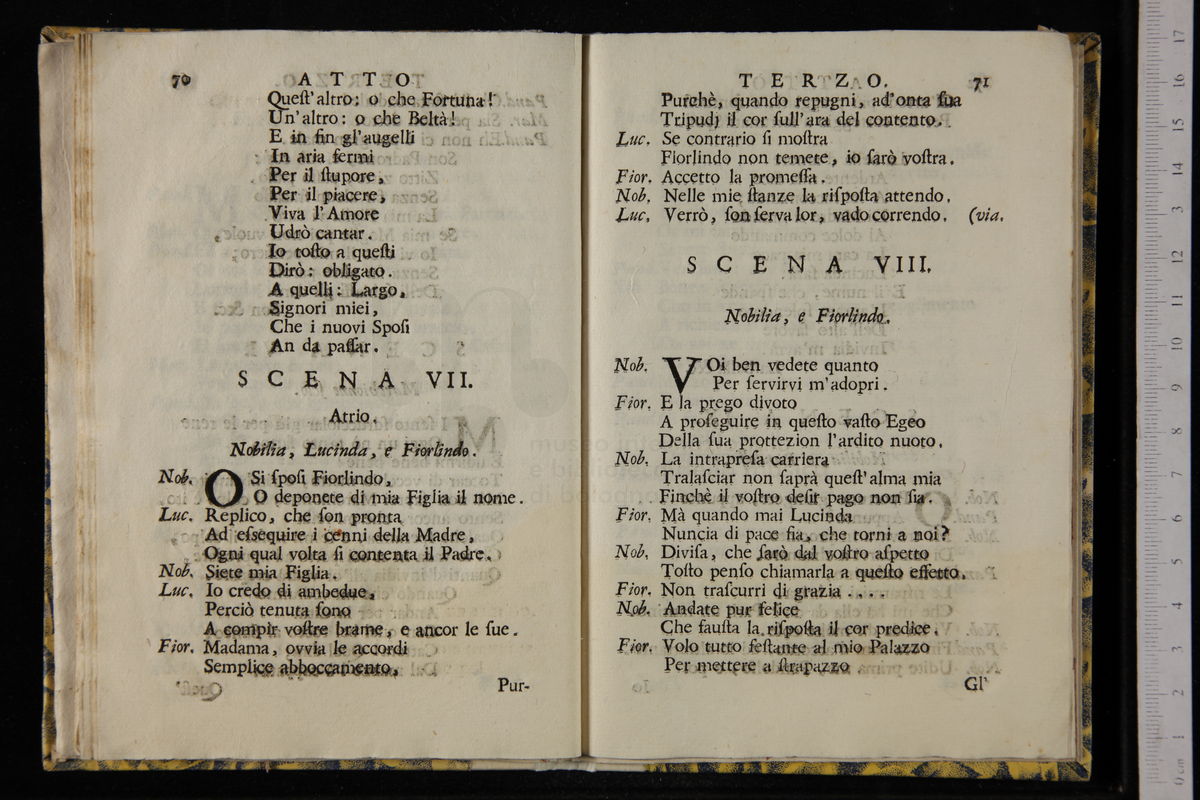 70 ATTO
Queſt'altro: o che Fortuna!
Un'altro: o che Beltà!
E in fin gl'augelli
In aria fermi
Per il ſtupore,
Per il piacere,
Viva l'Amore
Udrò cantar.
Io toſto a queſti
Dirò: obligato.
A quelli: Largo,
Signori miei,
Che i nuovi Spoſi
An da paſſar.
SCENA VII.
Atrio.
Nobilia, Lucinda, e Fiorlindo.
Nob. O Si ſpoſi Fiorlindo,
O deponete di mia Figlia il nome.
Luc. Replico, che ſon pronta
Ad eſsequire i cenni della Madre,
Ogni qual volta ſi contenta il Padre.
Nob. Siete mia Figlia.
Luc. Io credo di ambedue,
Perciò tenuta ſono
A compir voſtre brame, e ancor le ſue.
Fior. Madama, ovvia le accordi
Semplice abboccamento,
Pur-
TERZO. 71
Purchè, quando repugni, ad'onta ſua
Tripudj il cor ſull'ara del contento.
Luc. Se contrario ſi moſtra
Fiorlindo non temete, io ſarò voſtra.
Fior. Accetto la promeſſa.
Nob. Nelle mie ſtanze la riſpoſta attendo.
Luc. Verrò, ſon ſerva lor, vado correndo. (via.
SCENA VIII.
Nobilia, e Fiorlindo.
Nob. VOi ben vedete quanto
Per ſervirvi m'adopri.
Fior. E la prego divoto
A proſeguire in queſto vaſto Egeo
Della ſua prottezion l'ardito nuoto.
Nob. La intrapreſa carriera
Tralaſciar non ſaprà queſt'alma mia
Finchè il voſtro deſir pago non ſia.
Fior. Mà quando mai Lucinda
Nuncia di pace fia, che torni a noi?
Nob. Diviſa, che ſarò dal voſtro aſpetto
Toſto penſo chiamarla a queſto effetto.
Fior. Non traſcurri di grazia ....
Nob. Andate pur felice
Che fauſta la riſpoſta il cor predice.
Fior. Volo tutto feſtante al mio Palazzo
Per mettere a ſtrapazzo
Gl'